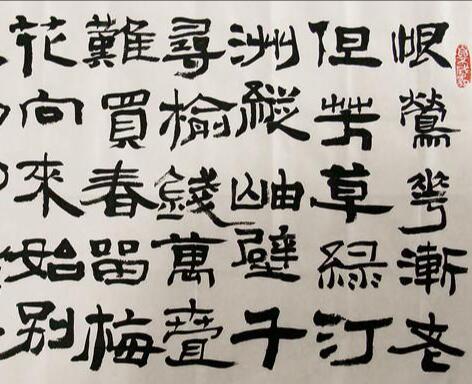 恨鶯華漸老
但芳草綠汀
洲縱岫壁千
尋榆錢萬疊
難買春留梅
花向來始別